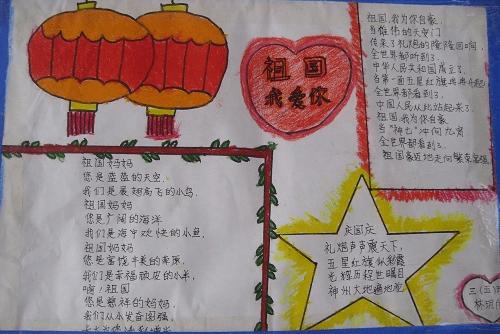 祖国
我爱你
祖国,我为你自豪,
当雄伟的天安门
传来了礼炮的隆隆回响,
全世界都听到了
中华人民共和国成立了,
当第一面五星红旗冉冉升起
全世界都看到了
中国人民从此站起来了,
祖国,我为你自豪,
当"神七"冲向九霄
全世界都看到了
祖国妈妈
您是蓝蓝的天空,
我们是展翅高飞的小鸟,
祖国妈妈
您是广阔的海洋
我们是海中欢快的小鱼,
祖国妈妈
您是富饶丰美的草原,
我们是幸福顽皮的小羊,
啊!祖国
您是慈祥的妈妈,
我们从今发奋图强,
庆国庆
礼炮声声震天下,
五星红旗似彩霞
光辉历程世瞩目
神州大地遍地花
三(五)